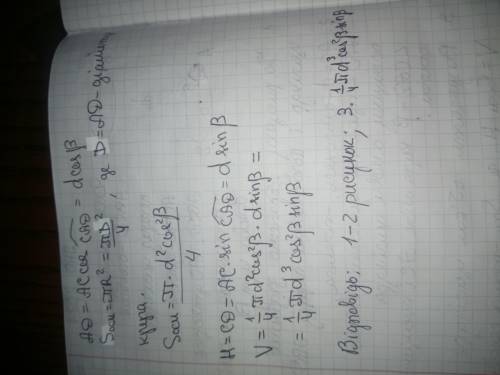 AD = AC cos CAD = d cosβ
Sосн = πR² = πD²/4, де D = AD - діаметр
круга.
Sосн = π · d² cos²β / 4
H = CD = AC · sin CAD = d sinβ
V = 1/4 πd² cos²β · d sinβ =
= 1/4 πd³ cos²β sinβ
Відповідь; 1-2 рисунок; 3. 1/4 πd³ cos²β sinβ